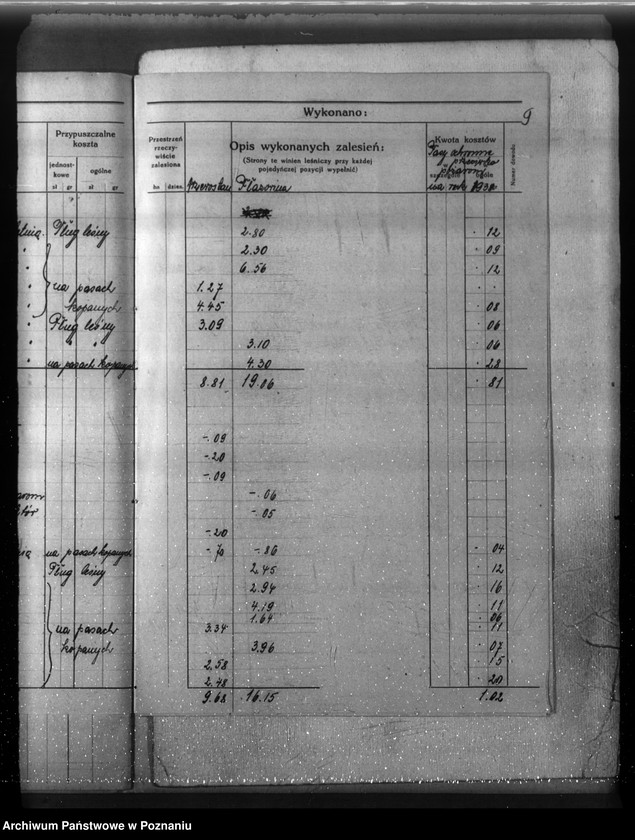 Wykonano:
9
Przypuszczalne
koszta
jednost-
kowe
ogólne
zł gr zł gr
Przestrzeń
rzeczy-
wiście
zalesiona
ha dzies.
Opis wykonanych zalesień:
(Strony te winien leśniczy przy każdej
pojedyńczej pozycji wypełnić)
Kwota kosztów
Pasy ochronne
szczegóły ogóln
na rok 1930
Numer dowodu
Pług leśny 2.80 12
2.30 09
6.56 12
na pasach 1.27
kopanych 4.45 08
Pług leśny 3.09 06
" " 3.10 06
na pasach kopanych 4.30 28
8.81 19.06 81
-.09
-.20
-.09
-.06
-.05
-.20
na pasach kopanych -.70 -.86 04
Pług leśny 2.45 12
2.94 16
4.19 11
1.64 06
na pasach 3.34 11
kopanych 3.96 07
2.58 15
2.48 20
9.68 16.15 1.02
Archiwum Państwowe w Poznaniu